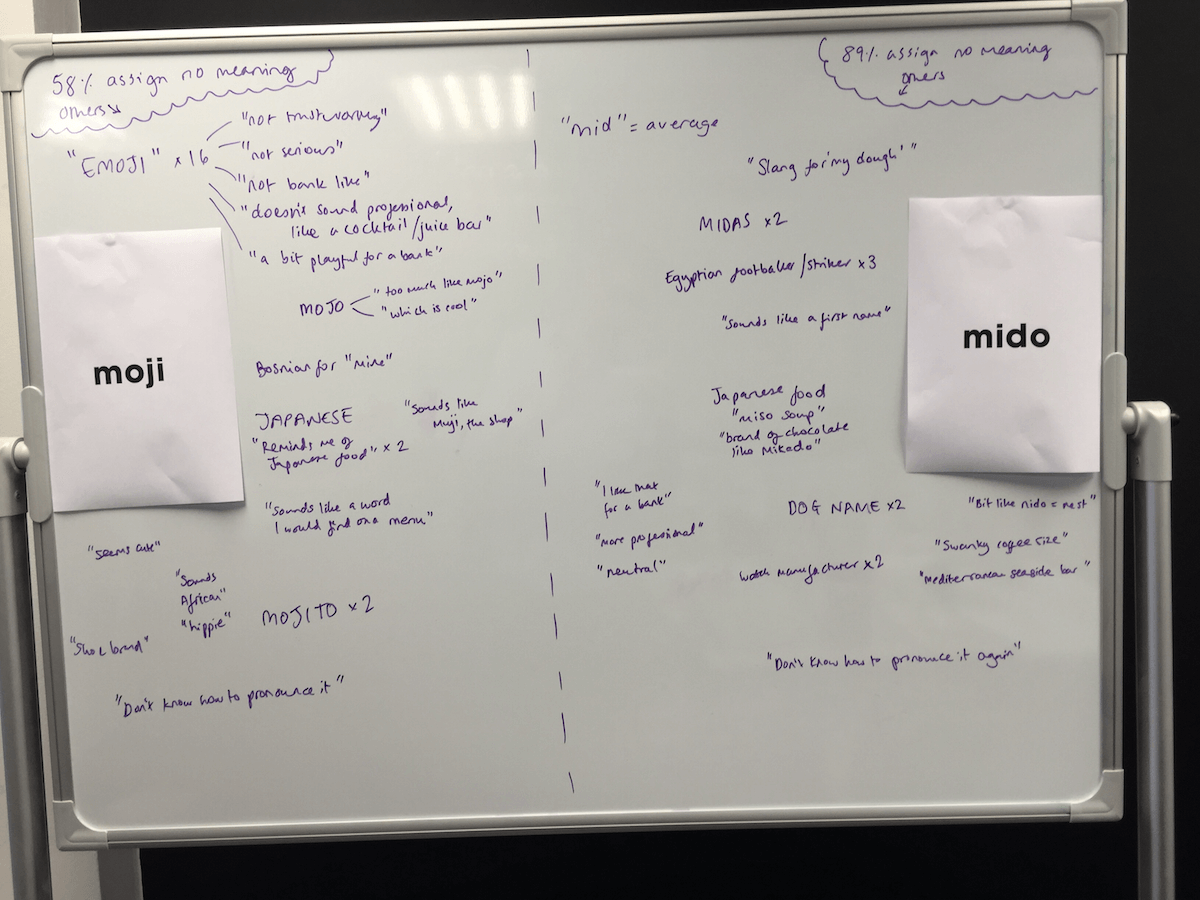 58% assign no meaning
others
"EMOJI" x 16
"not trustworthy"
"not serious"
"not bank like"
"doesn't sound professional,
like a cocktail/juice bar"
"a bit playful for a bank"
MOJO
"too much like mojo"
"which is cool"
moji
Bosnian for "mine"
JAPANESE
"Reminds me of
Japanese food" x 2
"Sounds like
Muji, the shop"
"Sounds like a word
I would find on a menu"
"seems cute"
"Sounds
African"
"hippie"
MOJITO x 2
"Shoe brand"
"Don't know how to pronounce it"
89% assign no meaning
others
"mid" = average
"Slang for 'my dough' "
MIDAS x2
Egyptian footballer/striker x3
"Sounds like a first name"
mido
Japanese food
"miso soup"
"brand of chocolate
like Mikado"
"I like that
for a bank"
"more professional"
"neutral"
DOG NAME x2
watch manufacturer x2
"Bit like nido = nest"
"Swanky coffee size"
"Mediterranean seaside bar"
"Don't know how to pronounce it again"